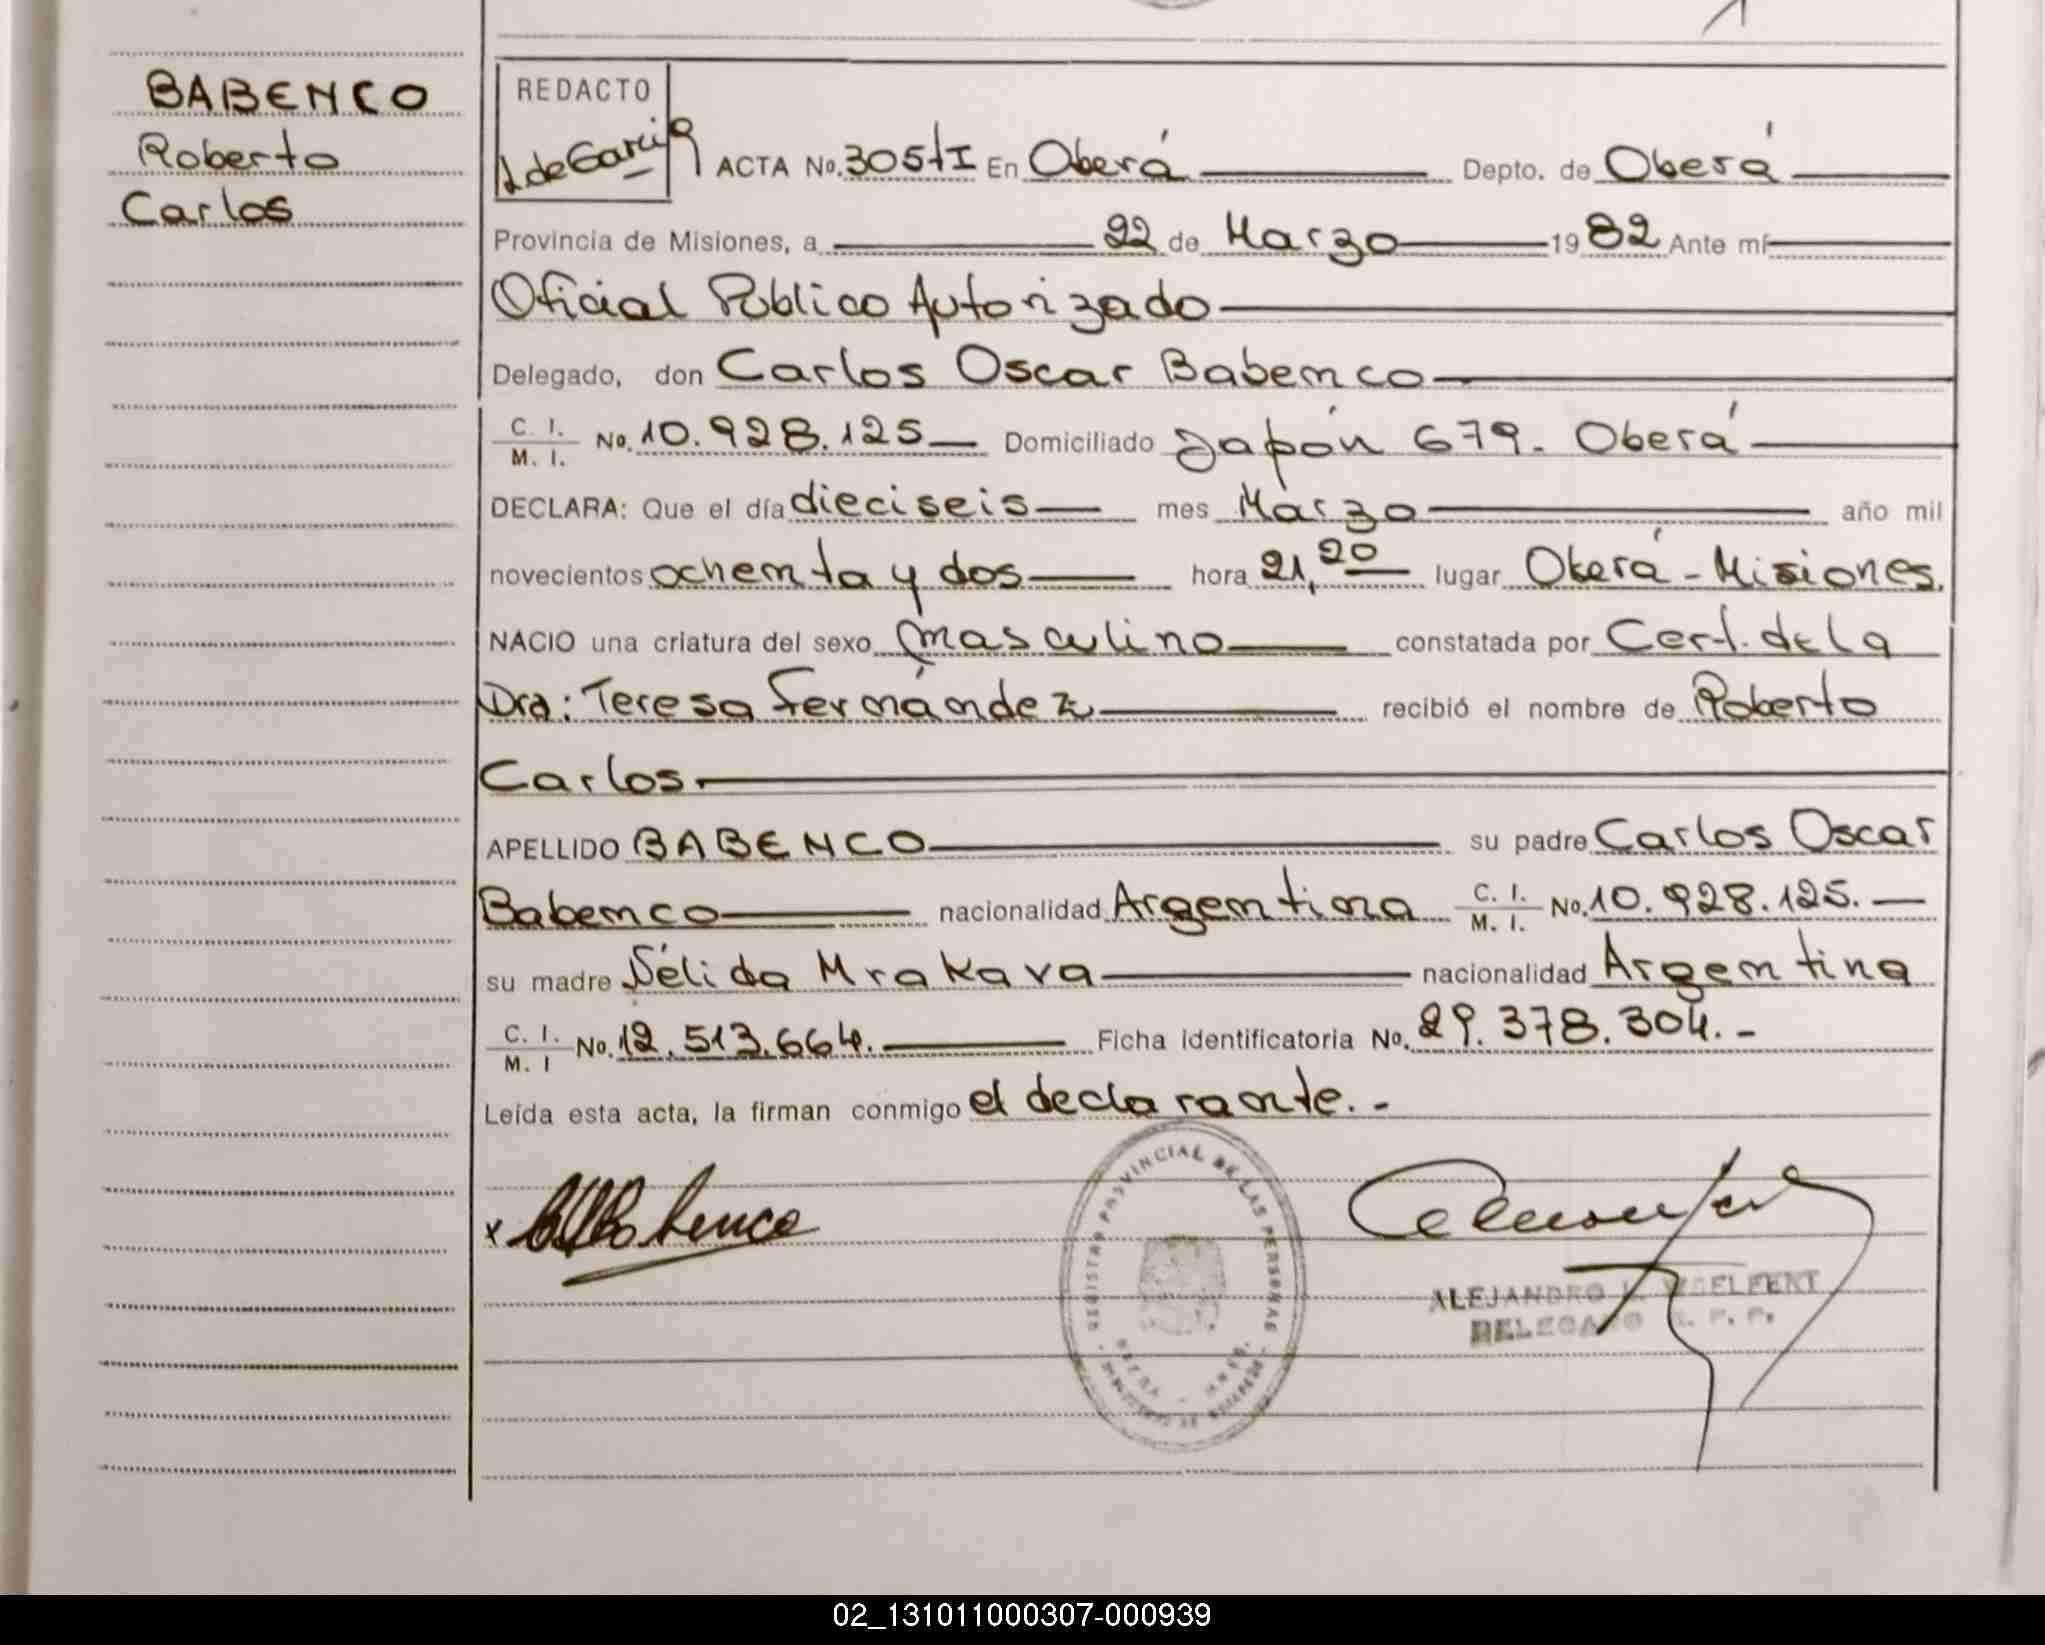 BABENCO
Roberto
Carlos
REDACTO
L de Garcia
ACTA No. 305/I En Oberá Depto. de Oberá
Provincia de Misiones, a 22 de Marzo 1982 Ante mí
Oficial Publico Autorizado
Delegado, don Carlos Oscar Babenco
C. I. / M. I. No. 10.928.125 Domiciliado Japón 679. Oberá
DECLARA: Que el día dieciseis mes Marzo año mil
novecientos ochenta y dos hora 21,20 lugar Oberá - Misiones.
NACIO una criatura del sexo masculino constatada por Cert. de la
Dra: Teresa Fernández recibió el nombre de Roberto
Carlos
APELLIDO BABENCO su padre Carlos Oscar
Babenco nacionalidad Argentina C. I. / M. I. No. 10.928.125.
su madre Nélida Mrakava nacionalidad Argentina
C. I. / M. I No. 12.513.664. Ficha identificatoria No. 29.378.304. -
Leída esta acta, la firman conmigo el declarante. -
x Babenco
REGISTRO PROVINCIAL DE LAS PERSONAS
ALEJANDRO
DELEGADO R. P. P.
02_131011000307-000939